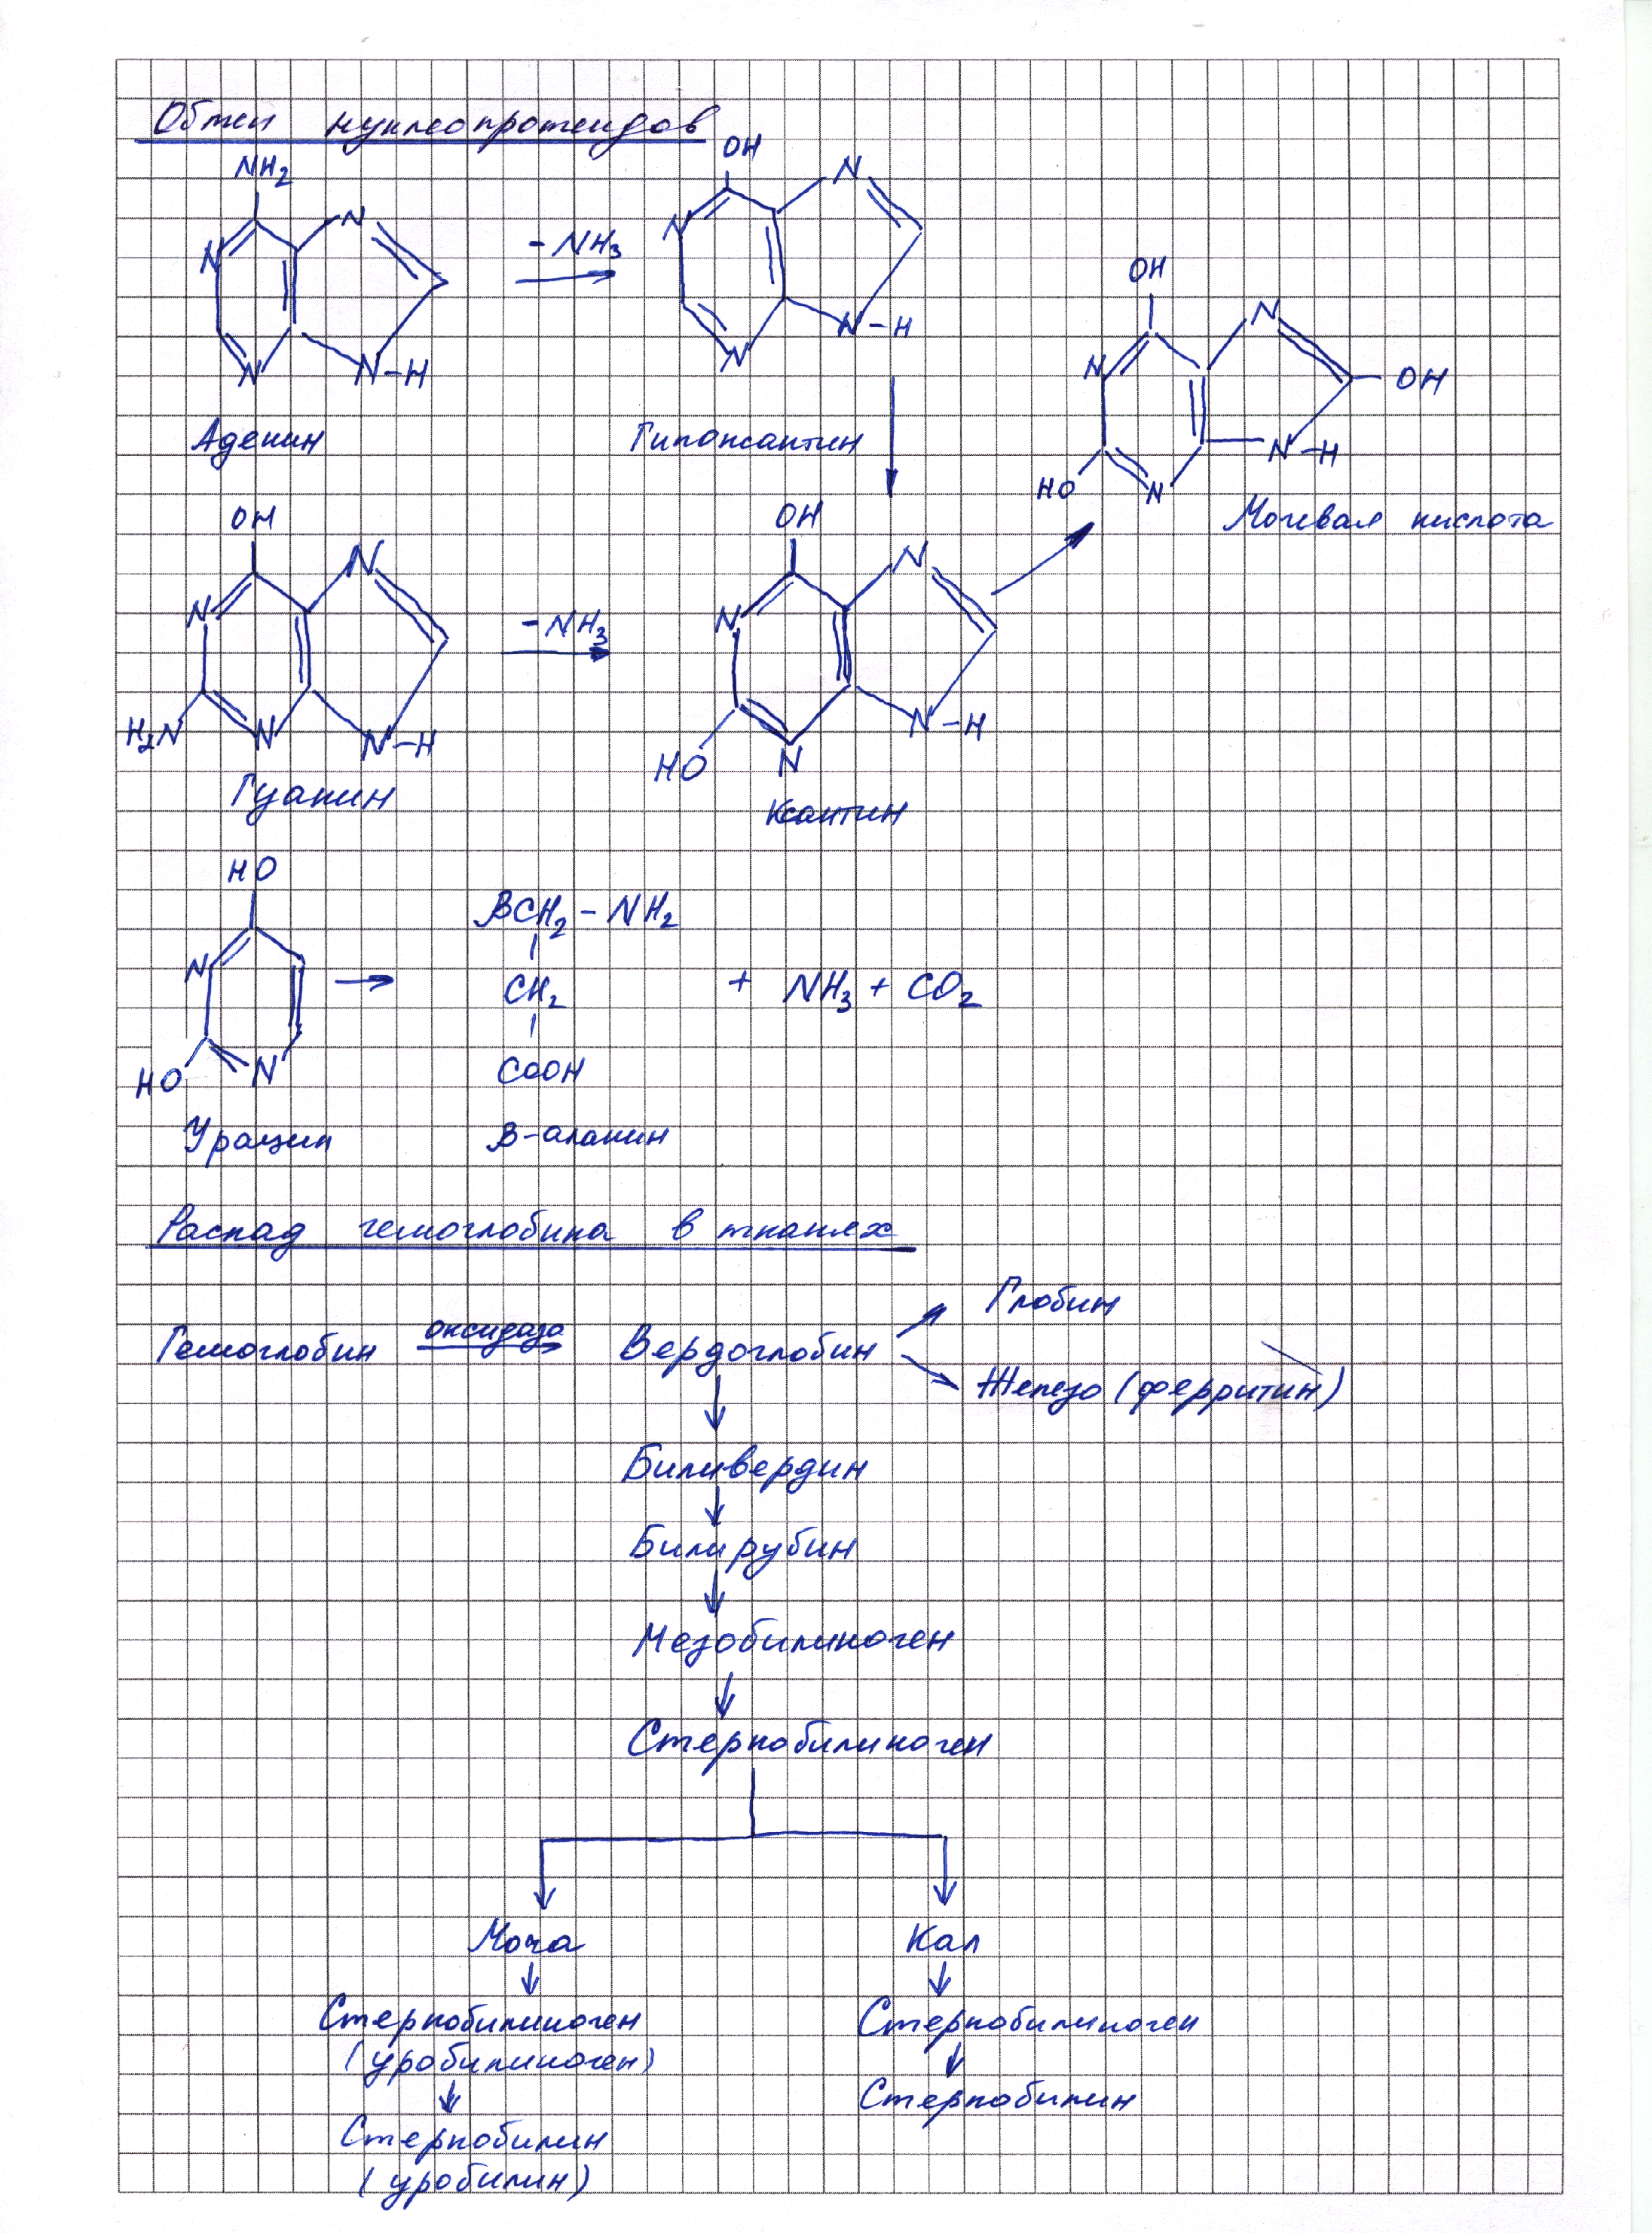 Обмен нуклеопротеидов
NH2
N
N
N
N-H
Аденин
- NH3
OH
N
N
N
N-H
Гипоксантин
OH
N
N
OH
HO
N
N-H
Мочевая кислота
OH
N
N
H2N
N
N-H
Гуанин
- NH3
OH
N
N
HO
N
N-H
Ксантин
HO
N
HO
N
Урацил
βCH2 - NH2
CH2
COOH
β-аланин
+ NH3 + CO2
Распад гемоглобина в тканях
Гемоглобин оксидаза Вердоглобин
Глобин
Железо (ферритин)
Биливердин
Билирубин
Мезобилиноген
Стеркобилиноген
Моча
Кал
Стеркобилиноген
(уробилиноген)
Стеркобилин
(уробилин)
Стеркобилиноген
Стеркобилин